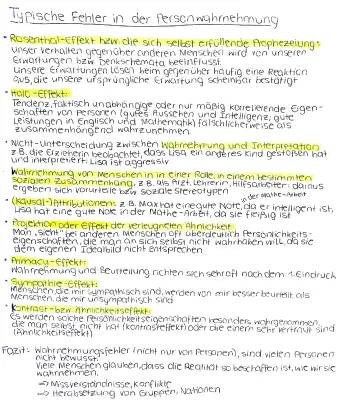 Typische Fehler in der Personwahrnehmung
• Rosenthal-Effekt bzw. die sich selbst erfüllende Prophezeiung:
Unser Verhalten gegenüber anderen Menschen wird von unseren
Erwartungen bzw. Denkschemata beeinflusst.
Unsere Erwartungen lösen beim gegenüber häufig eine Reaktion
aus, die unsere ursprüngliche Erwartung scheinbar bestätigt
• Halo-Effekt:
Tendenz, faktisch unabhängige oder nur mäßig korrelierende Eigen-
schaften von Personen (gutes Aussehen und Intelligenz, gute
Leistungen in Englisch und Mathematik) fälschlicherweise als
zusammenhängend wahrzunehmen.
• Nicht-Unterscheidung zwischen Wahrnehmung und Interpretation
z.B. die Erzieherin beobachtet, dass Lisa ein anderes Kind gestoßen hat
und interpretiert Lisa ist aggressiv
• Wahrnehmung von Menschen in einer Rolle, in einem bestimmten
sozialen Zusammenhang, z.B. als Arzt, Lehrerin, Hilfsarbeiter: daraus
ergeben sich Vorurteile bzw. soziale Stereotypen
in der Mathe-Arbeit
• (Kausal-)Attributionen: z.B. Max hat eine gute Note, da er intelligent ist,
Lisa hat eine gute Note in der Mathe-Arbeit, da sie fleißig ist
• Projektion oder Effekt der verleugneten Ähnlichkeit:
Man "sieht" bei anderen Menschen oft überdeutlich Persönlichkeits-
eigenschaften, die man an sich selbst nicht wahrhaben will, da sie
dem eigenen Idealbild nicht entsprechen
• Primacy-Effekt:
Wahrnehmung und Beurteilung richten sich schroff nach dem 1. Eindruck
• Sympathie-Effekt:
Menschen, die mir sympathisch sind, werden von mir besser beurteilt als
Menschen, die mir unsympathisch sind
• Kontrast- bzw. Ähnlichkeitseffekt:
Es werden solche Persönlichkeitseigenschaften besonders wahrgenommen,
die man selbst nicht hat (Kontrasteffekt) oder die einem sehr vertraut sind
(Ähnlichkeitseffekt)
Fazit: Wahrnehmungsfehler (nicht nur von Personen), sind vielen Personen
nicht bewusst.
Viele Menschen glauben, dass die Realität so beschaffen ist, wie wir sie
wahrnehmen.
⇒ Missverständnisse, Konflikte
⇒ Herabsetzung von Gruppen, Nationen